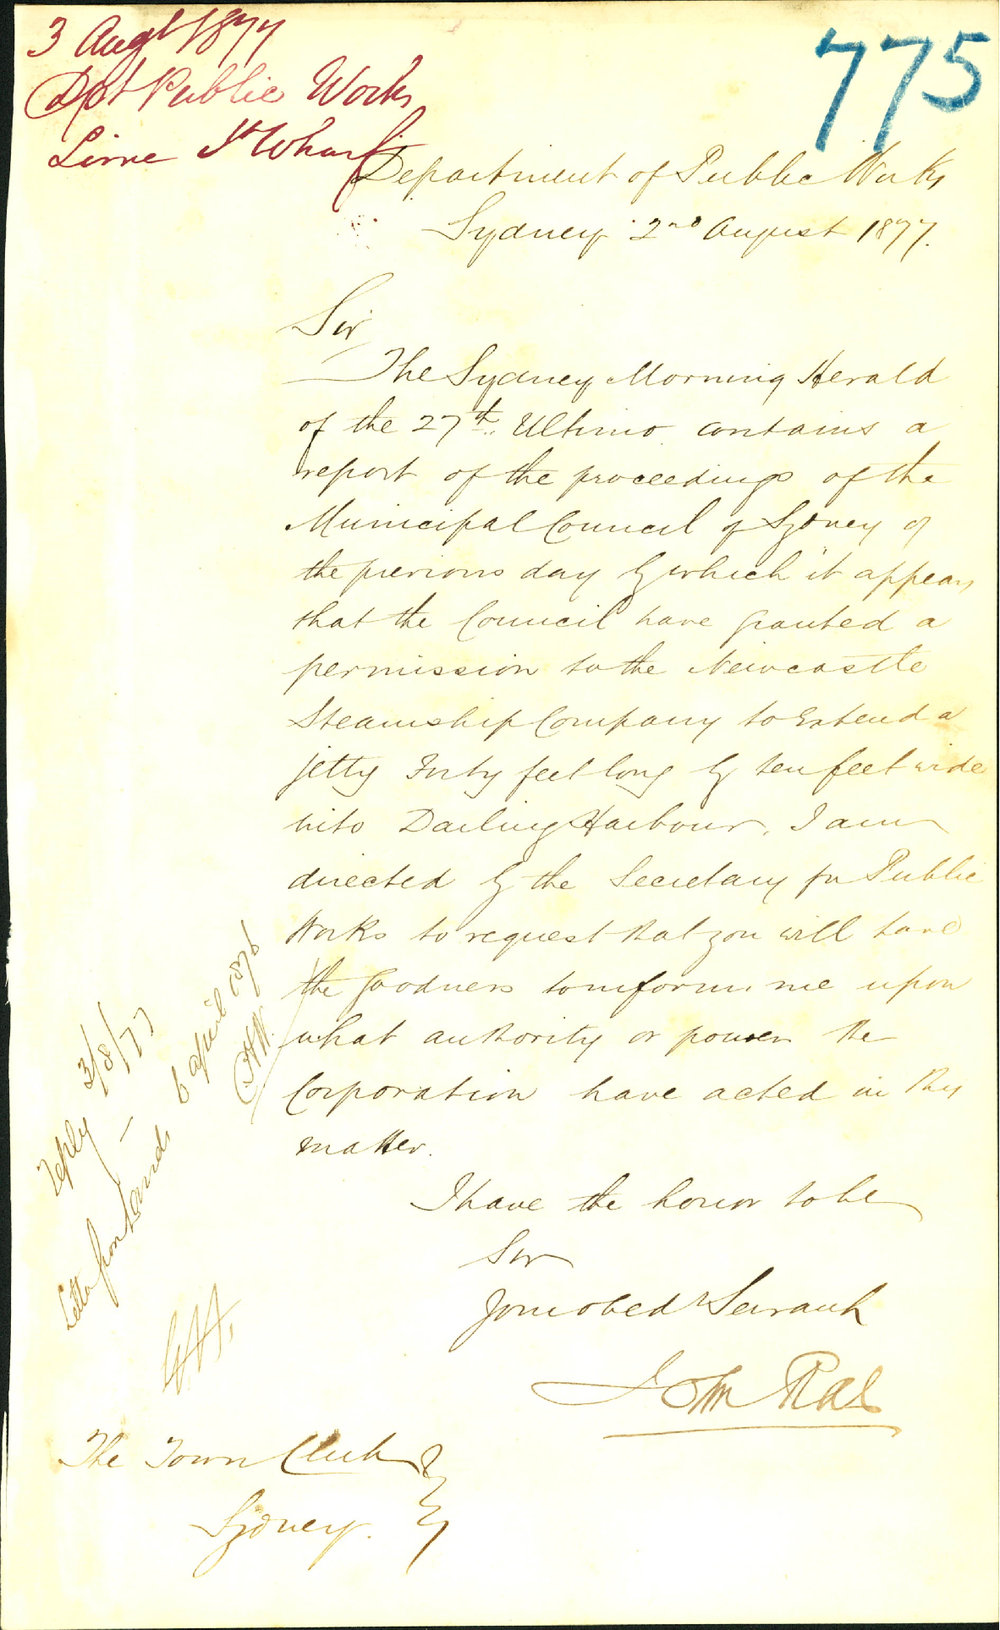 3 Augt 1877
Dpt Public Works
Lime St Wharf
775
Department of Public Works
Sydney 2nd August 1877.
Sir
The Sydney Morning Herald
of the 27th Ultimo contains a
report of the proceedings of the
Municipal Council of Sydney of
the previous day by which it appears
that the Council have granted a
permission to the Newcastle
Steamship Company to Extend a
jetty Forty feet long by ten feet wide
into Darling Harbour. I am
directed by the Secretary for Public
Works to request that you will have
the goodness to inform me upon
what authority or power the
Corporation have acted in this
matter.
I have the honor to be
Sir
Your obedt Servant
John Rae
The Town Clerk
Sydney.
Reply 3/8/77
Letter from Lands 6 April 1876